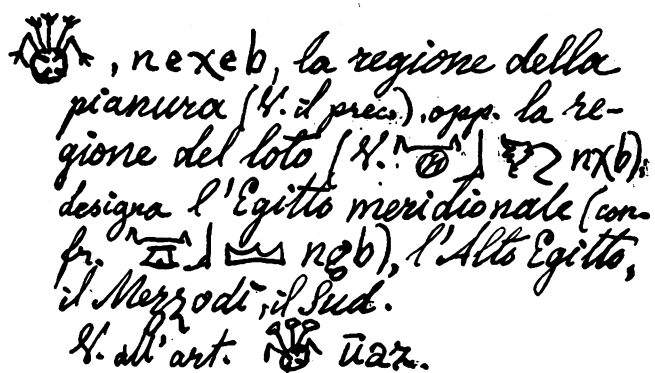 , nexeb, la regione della
pianura (V. il prec.), opp. la re-
gione del loto (V. nxb),
designa l'Egitto meridionale (con-
fr. ngb), l'Alto Egitto,
il Mezzodì, il Sud.
V. all'art. ūaz.